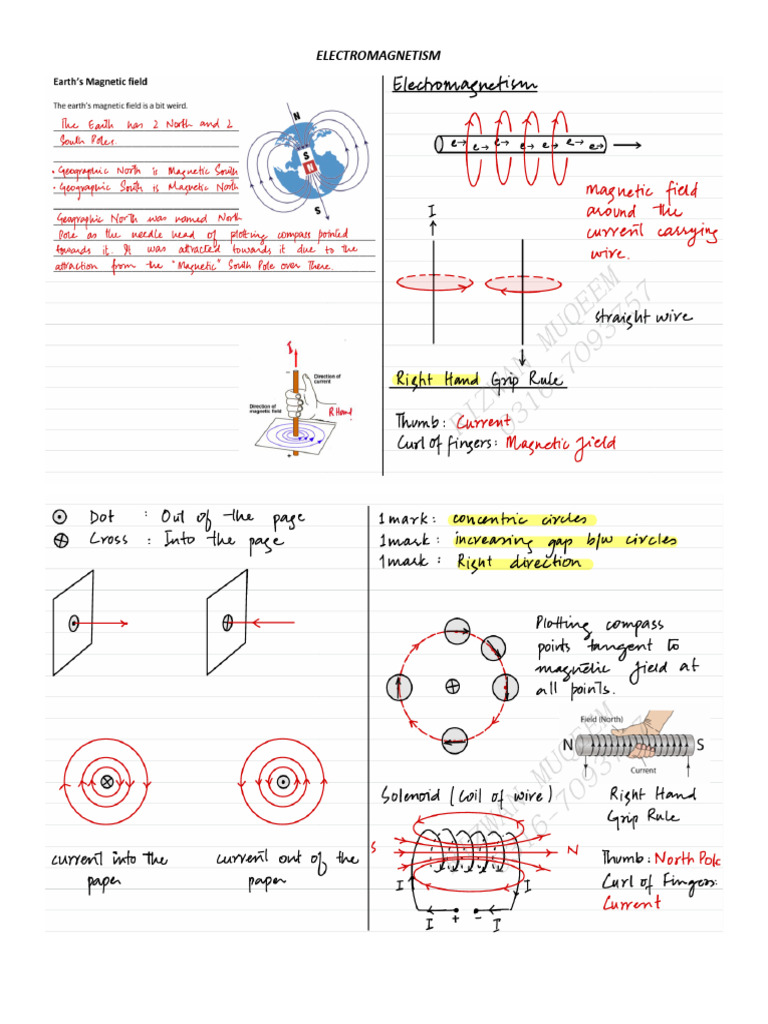 ELECTROMAGNETISM
Earth's Magnetic field
The earth's magnetic field is a bit weird.
The Earth has 2 North and 2
South Poles.
• Geographic North is Magnetic South
• Geographic South is Magnetic North
Geographic North was named North
Pole as the needle head of plotting compass pointed
towards it. It was attracted towards it due to the
attraction from the "Magnetic" South Pole over There.
N
S
N
S
I
Direction of
current
Direction of
magnetic field
R Hand
−
+
Electromagnetism
e→ e→ e→ e→ e→ e→ e→
magnetic field
around the
current carrying
wire.
I
straight wire
Right Hand Grip Rule
Thumb: Current
Curl of fingers: Magnetic field
RIZWAN MUQEEM
0316-7093757
Dot : Out of the page
Cross : Into the page
current into the
paper
current out of the
paper
1 mark: concentric circles
1 mark: increasing gap b/w circles
1 mark: Right direction
Plotting compass
points tangent to
magnetic field at
all points.
Field (North)
N
S
Current
Solenoid (coil of wire)
Right Hand
Grip Rule
S
N
I
I
I
+ -
I
Thumb: North Pole
Curl of Fingers:
Current